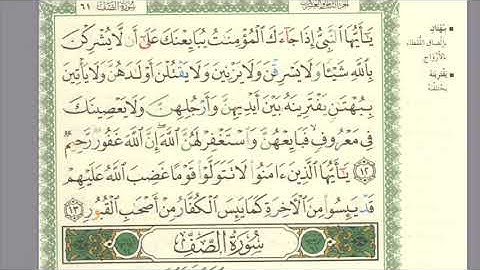 سُورَةُ الصَّفِّ ٦١
يَـٰٓأَيُّهَا ٱلنَّبِىُّ إِذَا جَآءَكَ ٱلْمُؤْمِنَـٰتُ يُبَايِعْنَكَ عَلَىٰٓ أَن لَّا يُشْرِكْنَ
بِٱللَّهِ شَيْـًٔا وَلَا يَسْرِقْنَ وَلَا يَزْنِينَ وَلَا يَقْتُلْنَ أَوْلَـٰدَهُنَّ وَلَا يَأْتِينَ
بِبُهْتَـٰنٍ يَفْتَرِينَهُۥ بَيْنَ أَيْدِيهِنَّ وَأَرْجُلِهِنَّ وَلَا يَعْصِينَكَ
فِى مَعْرُوفٍ فَبَايِعْهُنَّ وَٱسْتَغْفِرْ لَهُنَّ ٱللَّهَ إِنَّ ٱللَّهَ غَفُورٌ رَّحِيمٌ
١٢ يَـٰٓأَيُّهَا ٱلَّذِينَ ءَامَنُوا۟ لَا تَتَوَلَّوْا۟ قَوْمًا غَضِبَ ٱللَّهُ عَلَيْهِمْ
قَدْ يَئِسُوا۟ مِنَ ٱلْـَٔاخِرَةِ كَمَا يَئِسَ ٱلْكُفَّارُ مِنْ أَصْحَـٰبِ ٱلْقُبُورِ ١٣
سُورَةُ الصَّفِّ
بِبُهْتَانٍ
بإلصاق اللقطاء
بالأزواج
يَفْتَرِينَهُ
يختلقنه